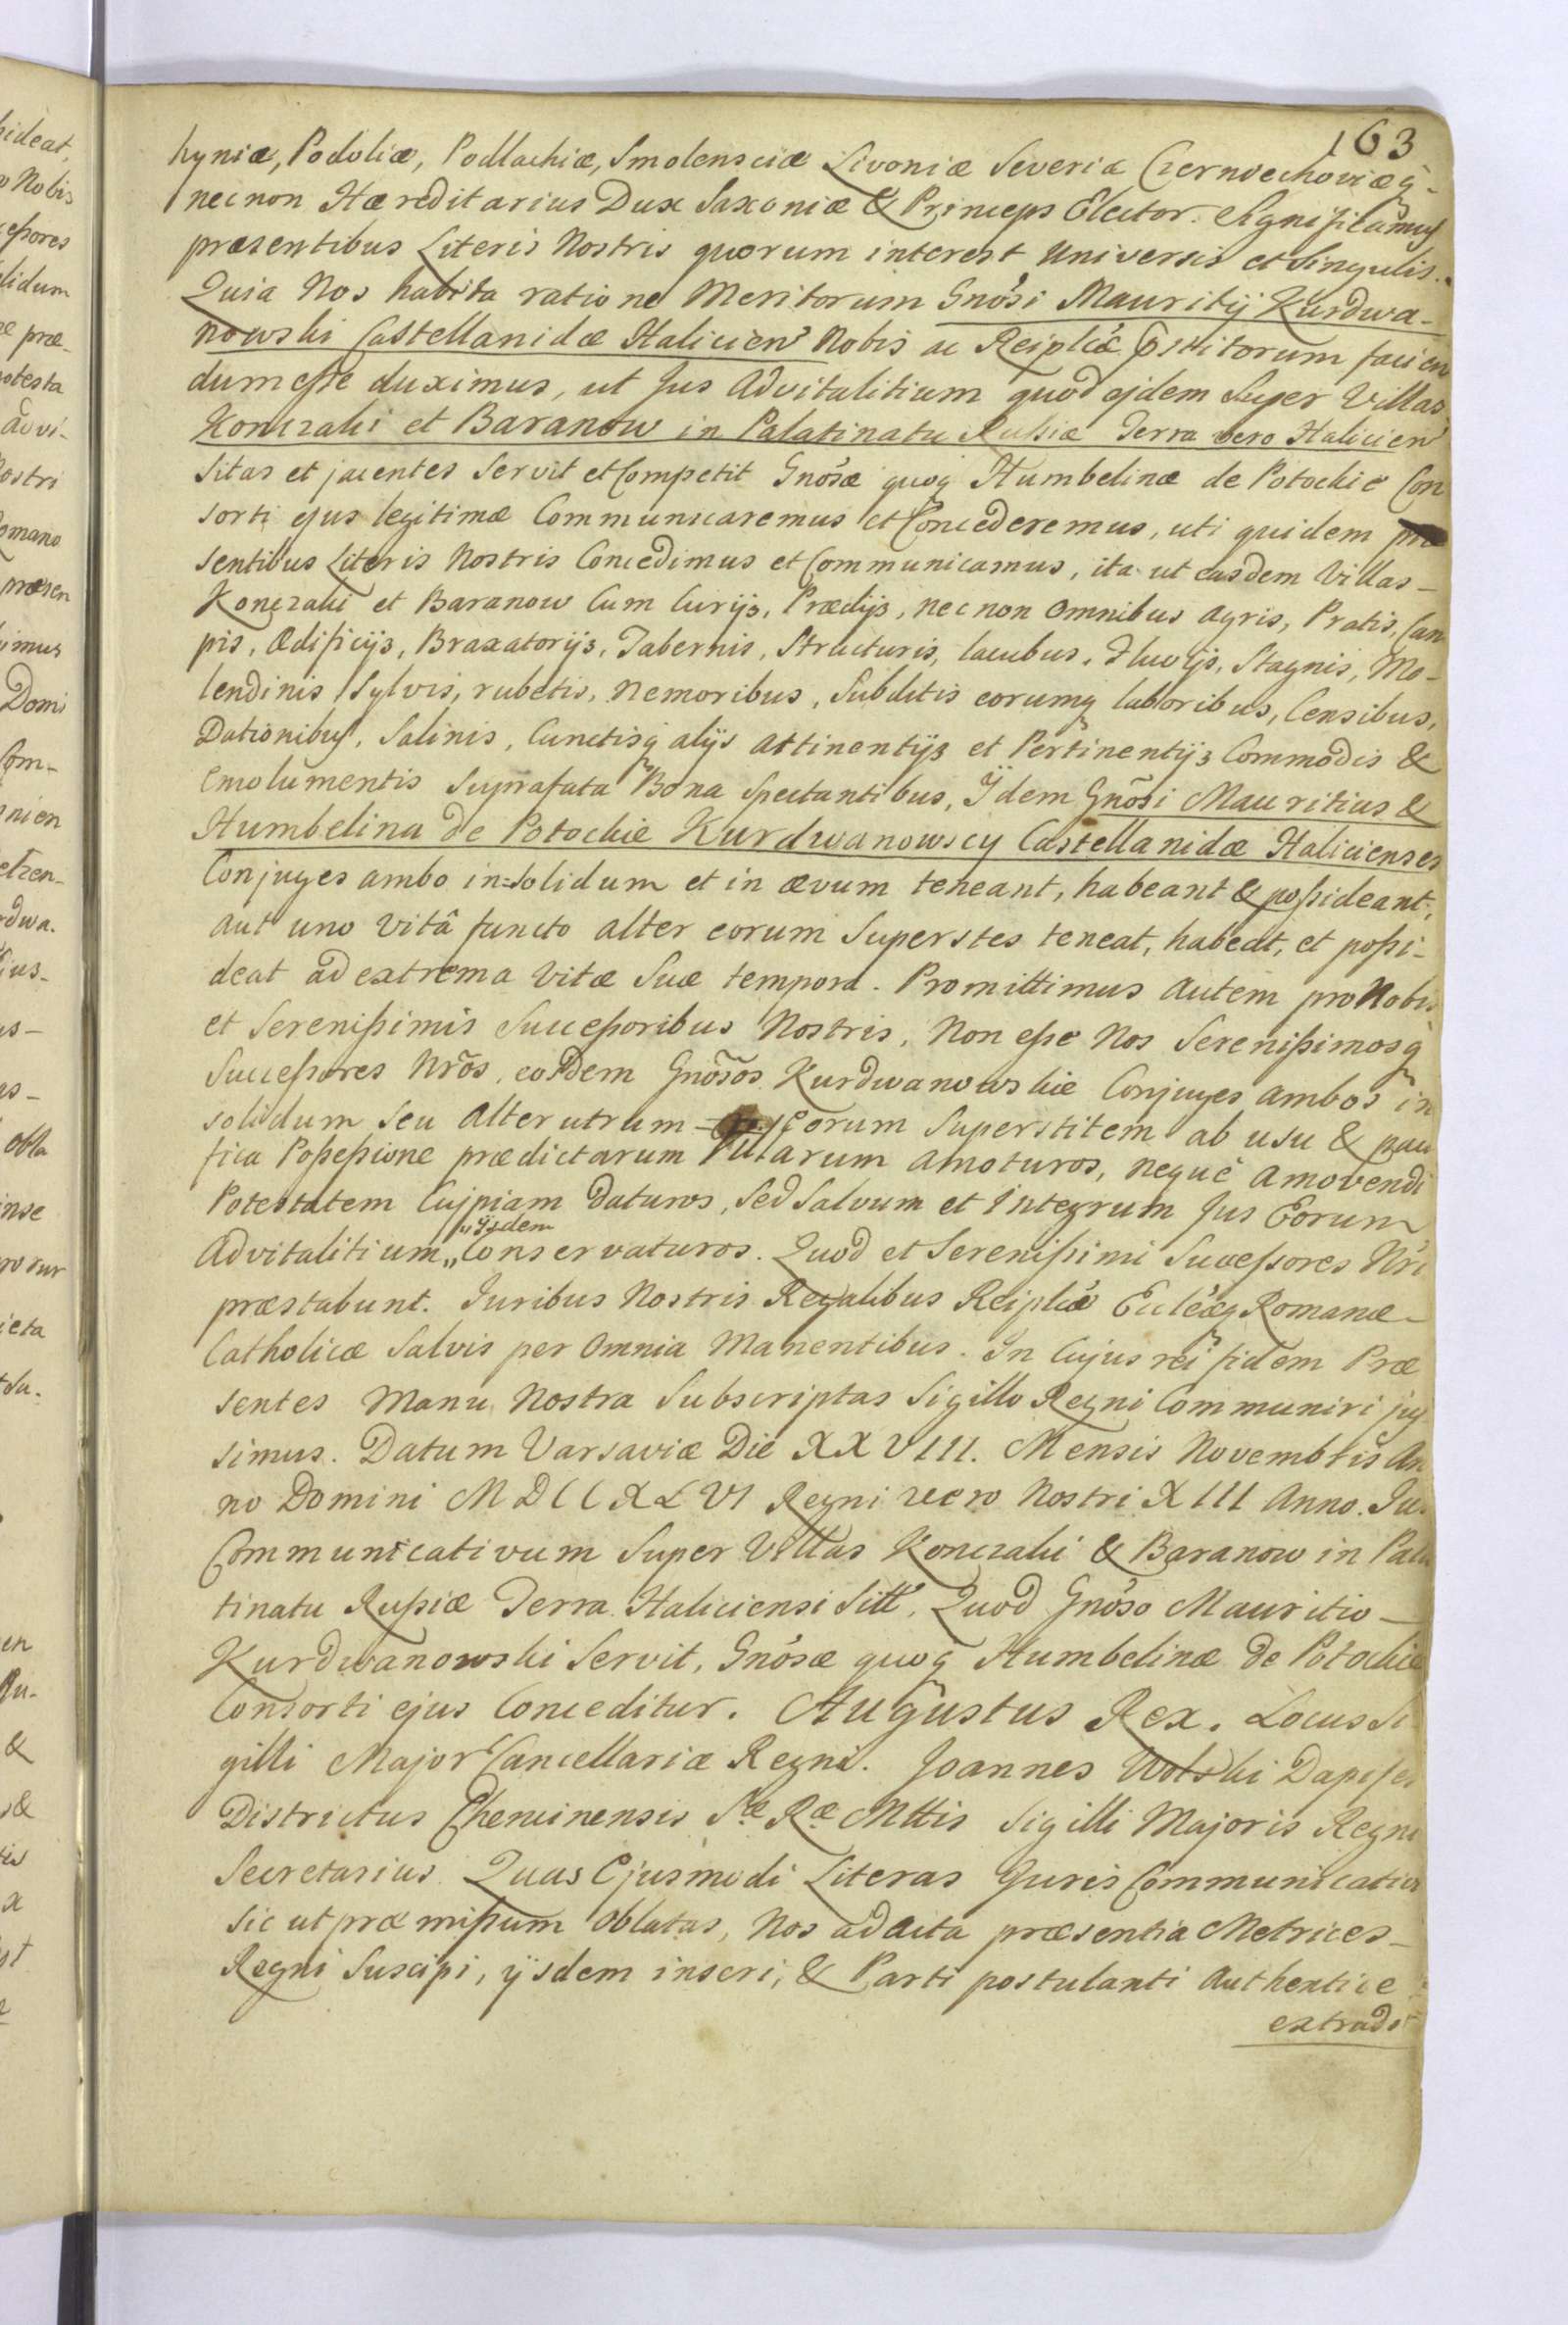 163
hyniæ, Podoliæ, Podlachiæ, Smolensciæ Livoniæ Severiæ Czerniechoviæq̃-
necnon Hæreditarius Dux Saxoniæ & Princeps Elector. Significamus
præsentibus Literis Nostris quorum interest Universis et Singulis.
Quia Nos habita ratione Meritorum Gnósi Mauritij Kurdwa-
nowski Castellanidæ Halicień Nobis ac Reiplicæ facien
dum esse duximus, ut Jus Advitalitium quod ejdem Super Villas
Konczaki et Baranow in Palatinatu Russiæ Terra vero Halicień
Sitas et jacentes Servit et Competit Gnósæ quoq̃ Humbelinæ de Potockie Con
sorti ejus legitimæ Communicaremus et Concederemus, uti quidem præ
sentibus Literis Nostris Concedimus et Communicamus, ita ut easdem Villas-
Konczaki et Baranow Cum Curijs, Prædijs, necnon Omnibus Agris, Pratis, Cam
pis, Ædificijs, Braxatorijs, Tabernis, Structuris, lacubus, Fluvijs, Stagnis, Mo-
lendinis Sylvis, rubetis, Nemoribus, Subditis eorumq̃ laboribus, Censibus,
Dationibus, Salinis, Cunctisq̃ alijs attinentijs et Pertinentijs Commodis &
Emolumentis Suprafata Bona Spectantibus, Ijdem Gnõsi Mauritius &
Humbelina de Potockie Kurdwanowscy Castellanidæ Halicienses
Conjuges ambo in=solidum et in ævum teneant, habeant & possideant;
aut uno vitâ functo alter eorum Superstes teneat, habeat, et possi-
deat ad extrema Vitæ Suæ tempora. Promittimus autem pro Nobis
et Serenissimis Successoribus Nostris, Non esse Nos Serenissimosq̃
Successores Nrõs, eosdem Gnõsos Kurdwanowskie Conjuges ambos in
solidum Seu alterutrum eorum Superstitem ab usu & paci
fica Possessione prædictarum Villarum amoturos, neque amovendi
Potestatem Cujpiam Daturos, Sed Salvum et Integrum Jus Eorum
ijsdem
Advitalitium,, Conservaturos. Quod et Serenissimi Successores Nri
præstabunt. Juribus Nostris Regalibus Reiplicæ Ecclæq̃ Romanæ-
Catholicæ Salvis per Omnia Manentibus. In Cujus rei fidem Præ
sentes Manu Nostra Subscriptas Sigillo Regni Communiri jus
simus. Datum Varsaviæ Die XXVIII. Mensis Novembris An
no Domini MDCCXLVI Regni vero Nostri XIII Anno. Jus
Communicativum Super Villas Konczaki & Baranow in Pala
tinatu Russiæ Terra Haliciensi Sitt. Quod Gnóso Mauritio-
Kurdwanowski Servit, Gnósæ quoq̃ Humbelinæ de Potockie
Consorti ejus Conceditur. Augustus Rex. Locus Si
gilli Major Cancellariæ Regni. Joannes Wolski Dapifer
Districtus Chencinensis Sæ Ræ Mttis Sigilli Majoris Regni
Secretarius. Quas Ejusmodi Literas Juris Communicativi
sic ut præmissum oblatas, Nos ad acta præsentia Metrices-
Regni Suscipi, ijsdem inseri, & Parti postulanti authentice
extradi